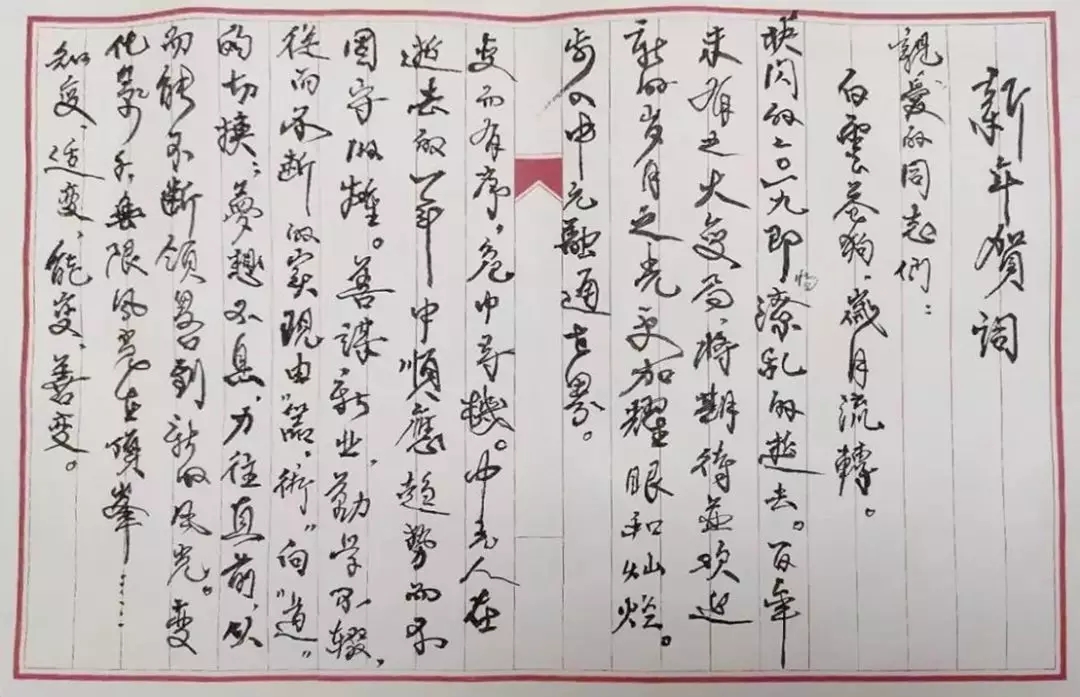 新年賀詞
親愛的同志們：
白雲蒼狗，歲月流轉。
映閃的二〇一九即將繚亂的逝去。百年
未有之大變局，将期待並欢迎
新的岁月之光更加耀眼和灿烂。
步入中元融通世界。
变而有序，危中寻機。中元人在
逝去的一年中順應趨勢而不
固守故轍。善謀新业，勤学不辍，
從而不断的实现由“器、術”向“道”
的切换；夢想不息，力往直前，从
而能不断领略到新的风光。变
化万千無限风光在頂峯……
知变、适变、能变、善变。